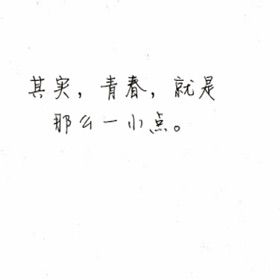 其实，青春，就是
那么一小点。